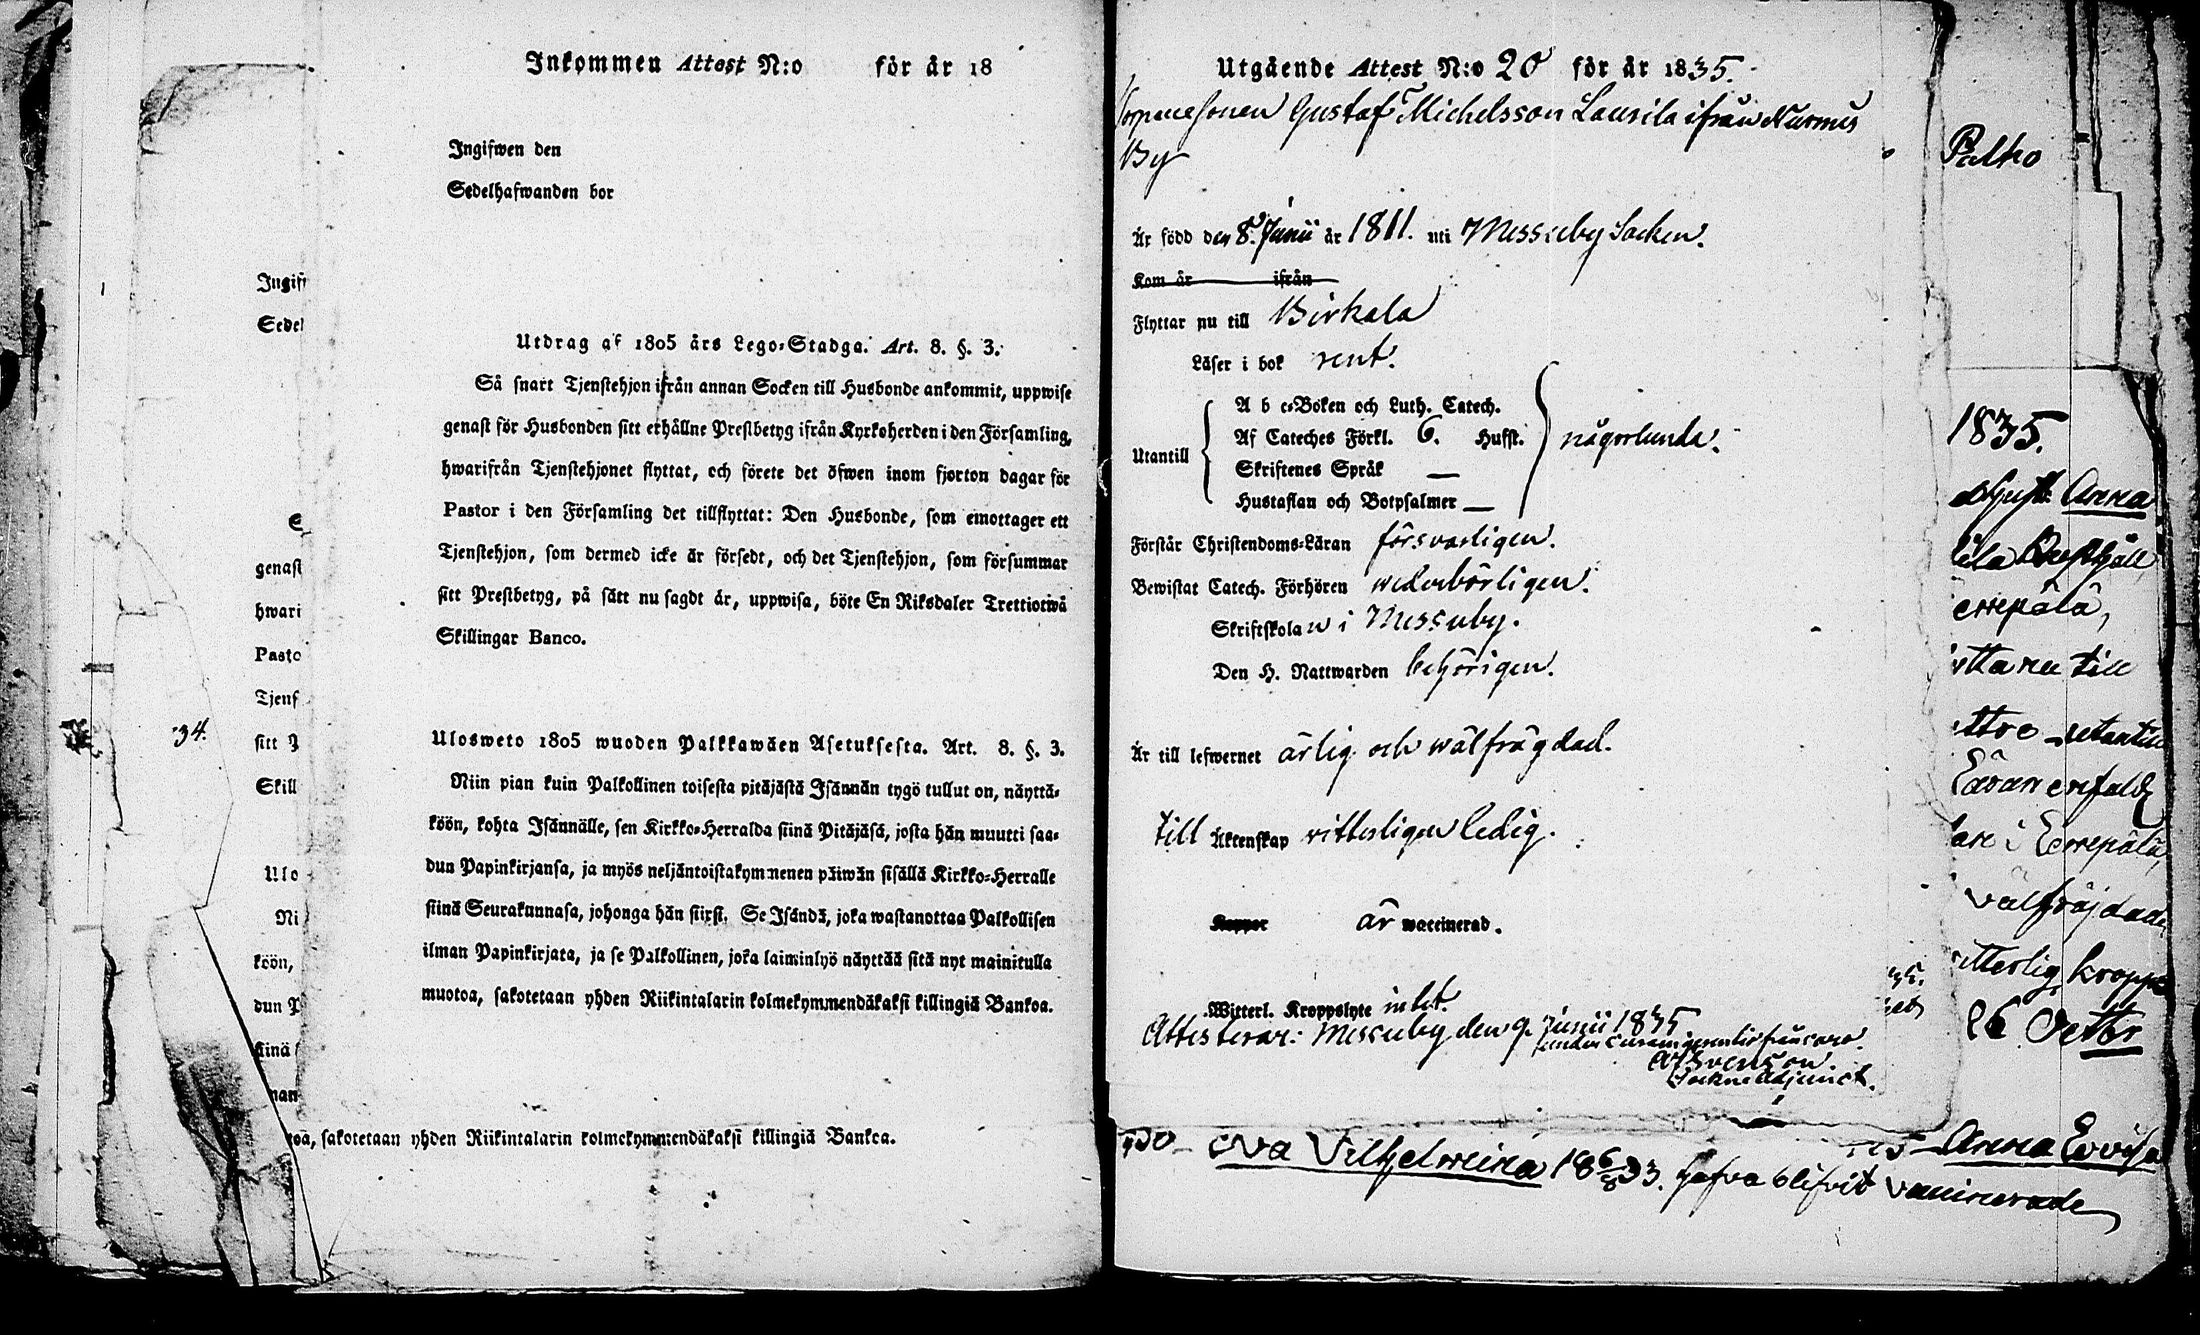 Inkommen Attest N:o för år 18
Ingifwen den
Sedelhafwanden bor
Utdrag af 1805 års Lego-Stadga. Art. 8. §. 3.
Så snart Tjenstehjon ifrån annan Socken till Husbonde ankommit, uppwise
genast för Husbonden sitt erhållne Prestbetyg ifrån Kyrkoherden i den Församling,
hwarifrån Tjenstehjonet flyttat, och förete det öfwen inom fjorton dagar för
Pastor i den Församling det tillflyttat: Den Husbonde, som emottager ett
Tjenstehjon, som dermed icke är försedt, och det Tjenstehjon, som försummar
sitt Prestbetyg, på sätt nu sagdt är, uppwisa, böte En Riksdaler Trettiotwå
Skillingar Banco.
Ulosweto 1805 wuoden Palkkawäen Asetuksesta. Art. 8. §. 3.
Niin pian kuin Palkollinen toisesta pitäjästä Isännän tygö tullut on, näyttä-
köön, kohta Isännälle, sen Kirkko-Herralda siinä Pitäjäsä, josta hän muutti saa-
dun Papinkirjansa, ja myös neljäntoistakymmenen päiwän sisällä Kirkko-Herralle
siinä Seurakunnasa, johonga hän siirsi. Se Isändä, joka wastanottaa Palkollisen
ilman Papinkirjata, ja se Palkollinen, joka laiminlyö näyttää sitä nyt mainitulla
muotoa, sakotetaan yhden Riikintalarin kolmekymmendäkaksi killingiä Bankoa.
Ingif
Sedel
genast
hwari
Pasto
Tjens
34.
sitt P
Skill
Ulo
Ni
köön,
dun P
siinä
man
sakotetaan yhden Riikintalarin kolmekymmendäkaksi killingiä Bankca.
Utgående Attest N:o 20 för år 1835.
Gustaf Michelsson Laurila ifrån Nurmis
By
Är född den 8. Junii år 1811. uti Messuby Socken.
Kom år ifrån
Flyttar nu till Birkala
Läser i bok rent.
Utantill
A b c-Boken och Luth. Catech.
Af Cateches Förkl. 6. Hufst.
Skriftenes Språk —
Hustaflan och Botpsalmer —
någorlunda.
Förstår Christendoms-Läran försvarligen.
Bewistat Catech. Förhören wederbörligen.
Skriftskolan i Messuby.
Den H. Nattwarden behörigen.
Är till lefwernet ärlig och wälfrägdad.
till Äktenskap witterligen ledig.
Koppor är waccinerad.
Witterl. Kroppslyte intet.
Attesterar: Messuby den 9. Junii 1835
Svenson.
Sockne Adjunct.
1835.
Anna
errepälä,
till
utantill
Läran enfald
i Errepälä,
välfräjdade
witterlig kropps
26 Octbr
Eva Vilhelmina 18 6/8 33. hafva blifvit vaccinerade
Anna Lovisa